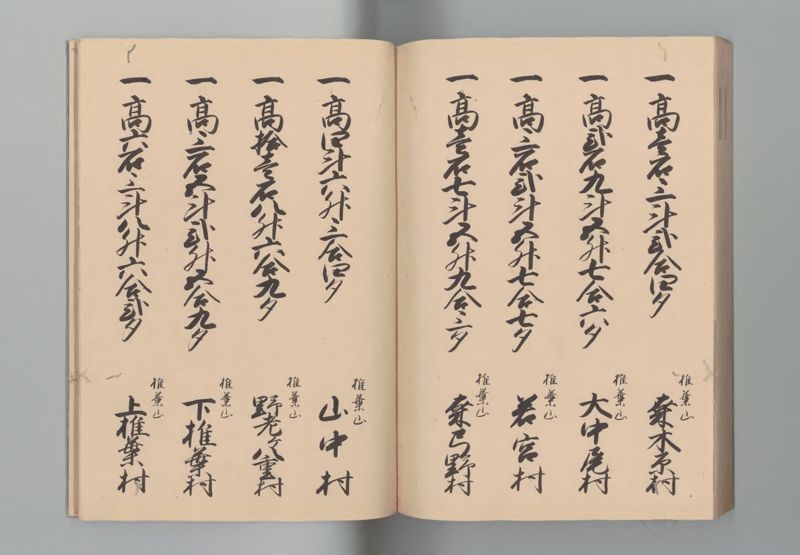 一高壱石三斗弐合四夕
椎葉山
桑木原村
一高弐石九斗五升七合六夕
椎葉山
大中尾村
一高三石弐斗五升七合七夕
椎葉山
若宮村
一高壱石七斗五升九合三夕
椎葉山
桑弓野村
一高四斗六升三合四夕
椎葉山
山中村
一高拾壱石八升六合九夕
椎葉山
野老ヶ八重村
一高三石五斗弐升五合九夕
椎葉山
下椎葉村
一高六石三斗八升六合弐夕
椎葉山
上椎葉村